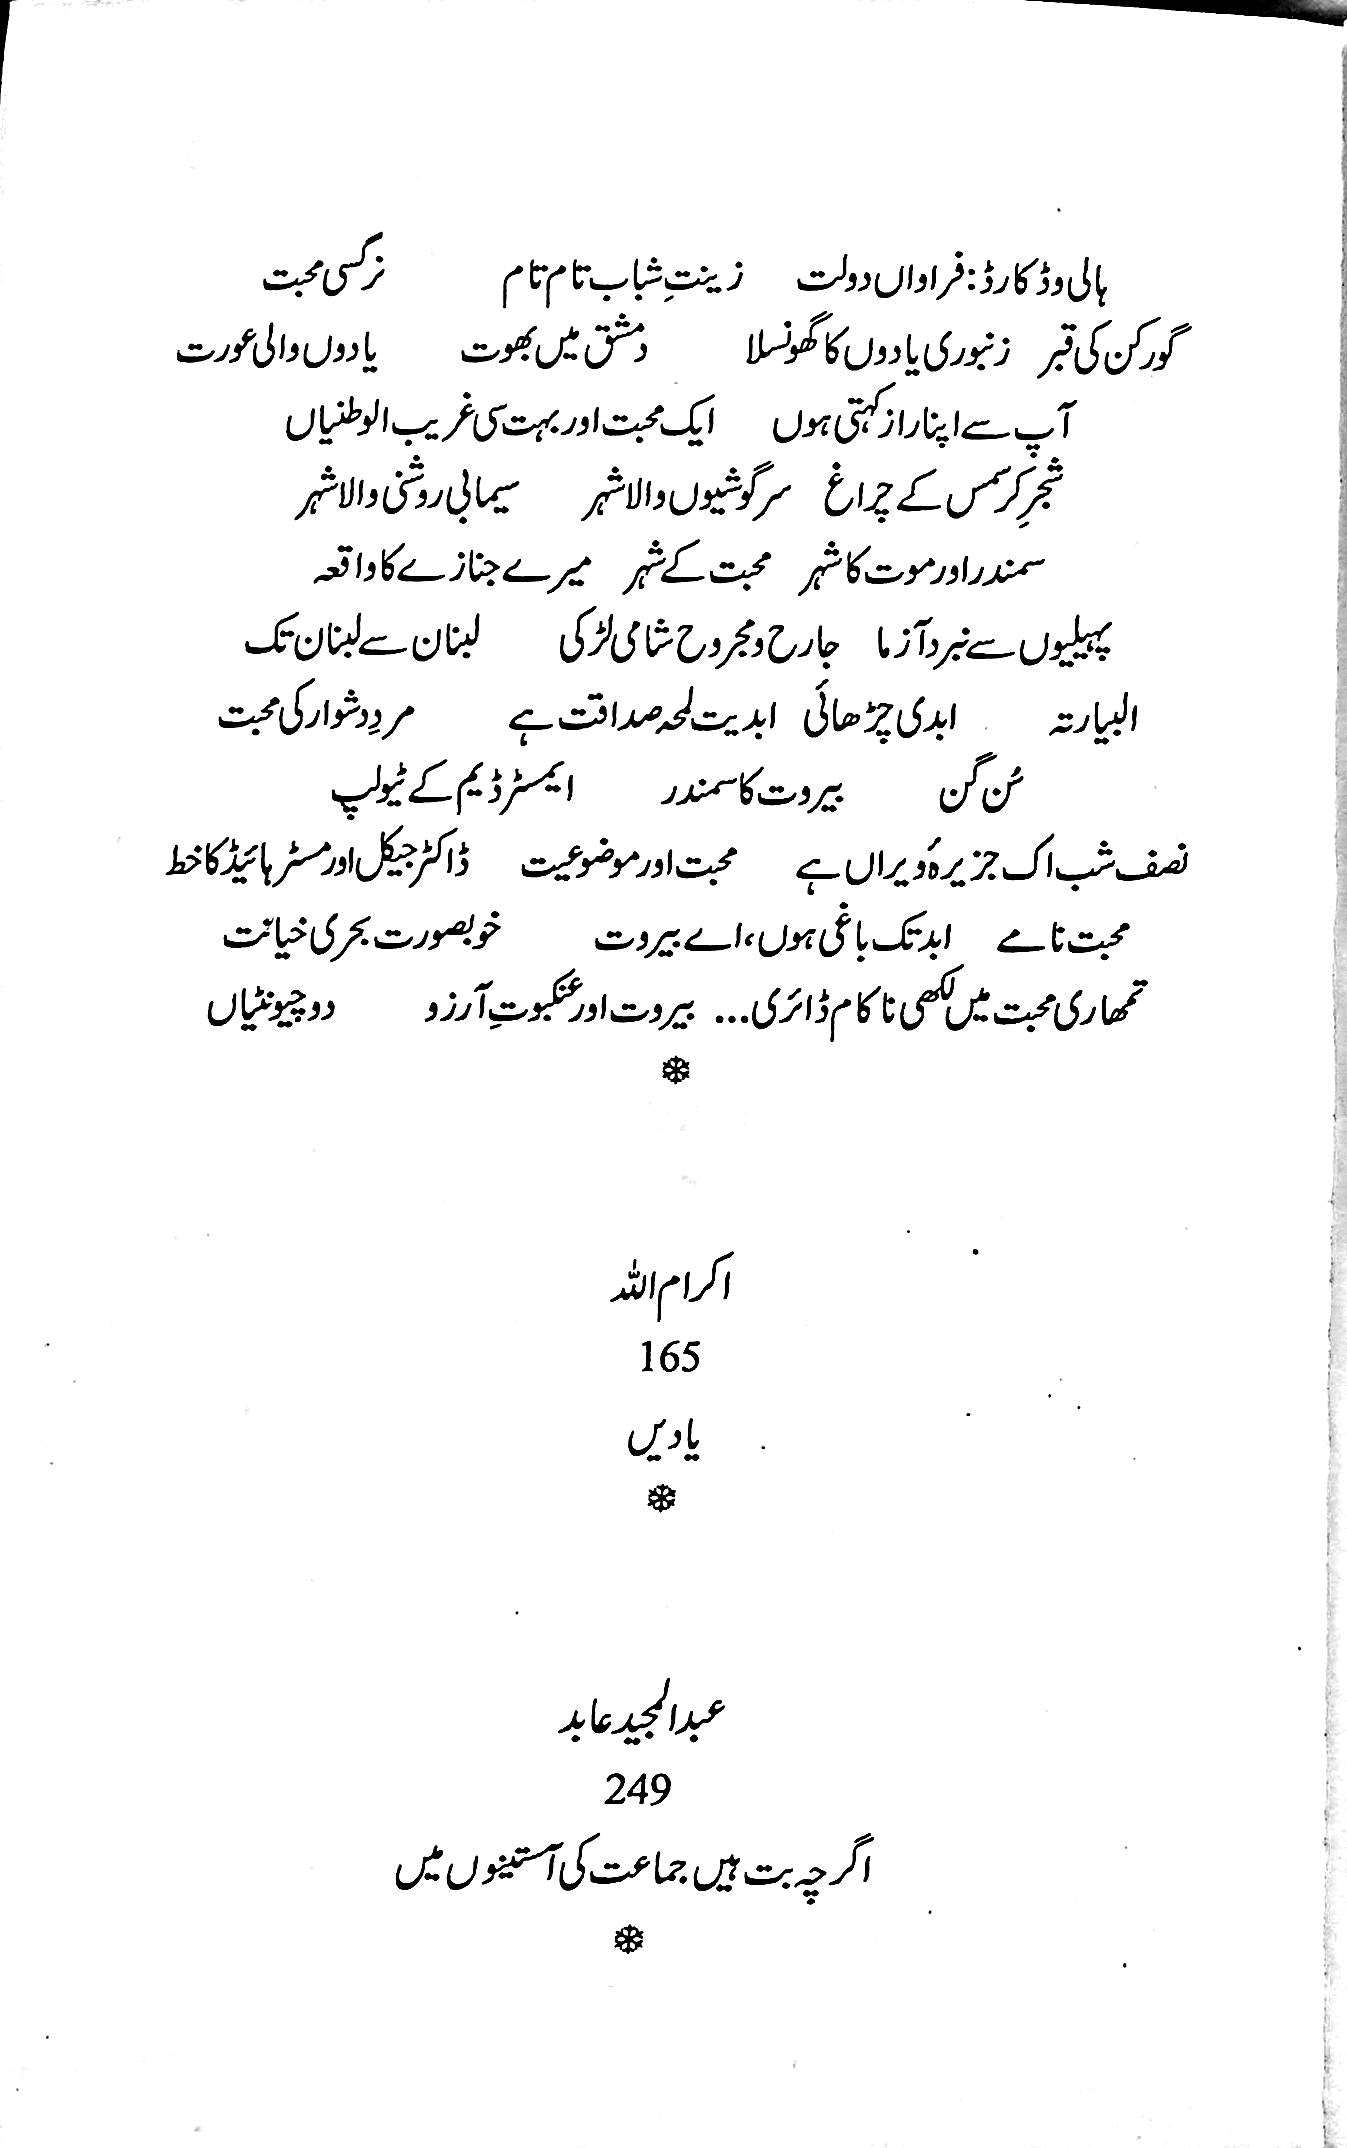 ہالی وڈ کارڈ: فراواں دولت زینتِ شباب تام تام نرگسی محبت
گورکن کی قبر زنبوری یادوں کا گھونسلا دمشق میں بھوت یادوں والی عورت
آپ سے اپنا راز کہتی ہوں ایک محبت اور بہت سی غریب الوطنیاں
شجرِ کرسمس کے چراغ سرگوشیوں والا شہر سیمابی روشنی والا شہر
سمندر اور موت کا شہر محبت کے شہر میرے جنازے کا واقعہ
پہیلیوں سے نبرد آزما جارح و مجروح شامی لڑکی لبنان سے لبنان تک
البیارتہ ابدی چڑھائی ابدیت لمحہ صداقت ہے مردِ دشوار کی محبت
سُن گن بیروت کا سمندر ایمسٹرڈیم کے ٹیولپ
نصف شب اک جزیرۂ ویراں ہے محبت اور موضوعیت ڈاکٹر جیکل اور مسٹر ہائیڈ کا خط
محبت نامے ابد تک باغی ہوں، اے بیروت خوبصورت بحری خیانت
تمھاری محبت میں لکھی ناکام ڈائری... بیروت اور عنکبوتِ آرزو دو چیونٹیاں
اکرام اللہ
165
یادیں
عبدالمجید عابد
249
اگرچہ بت ہیں جماعت کی آستینوں میں